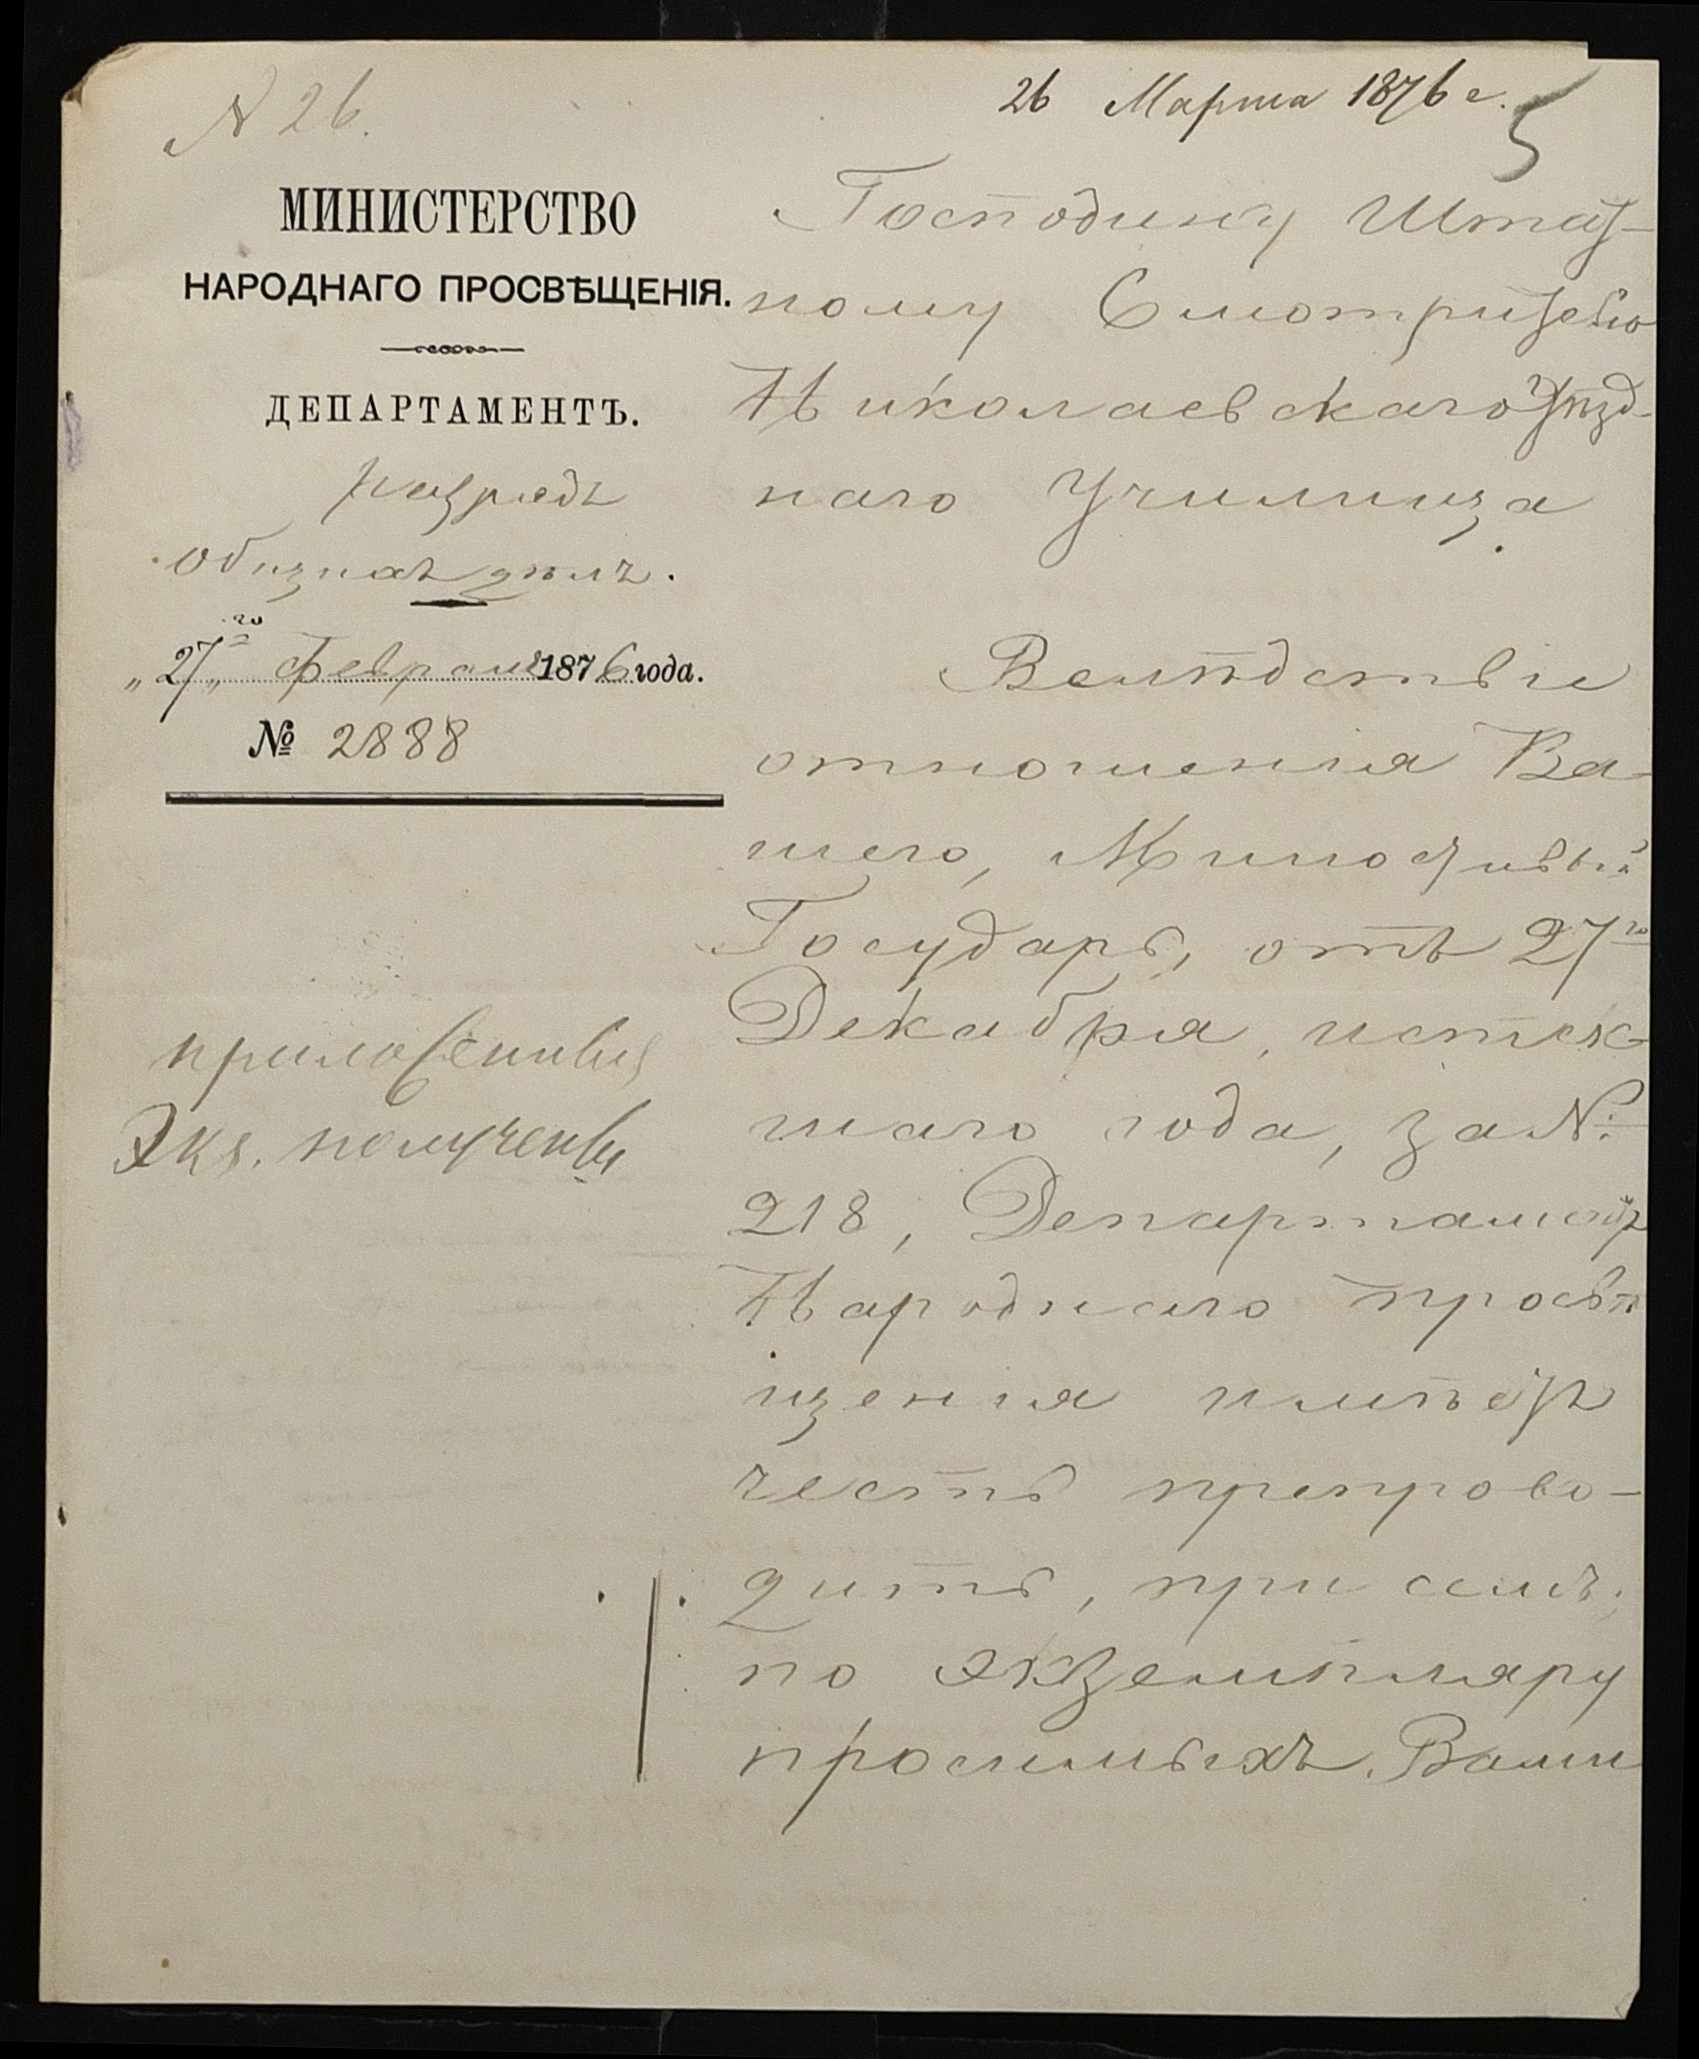 N 26.
26 Марта 1876 г.
5
МИНИСТЕРСТВО
НАРОДНАГО ПРОСВѢЩЕНІЯ.
ДЕПАРТАМЕНТЪ.
Разрядъ
общихъ дѣлъ.
„27го„ Февраля 1876 года.
№ 2888
приложенныя
Экз. получены
Господину Штат-
ному Смотрителю
Николаевскаго Уѣзд-
наго Училища.
Вслѣдствіе
отношенія Ва-
шего, Милостивый
Государь, отъ 27го
Декабря, истек-
шаго года, за №
218, Департаментъ
Народнаго Просвѣ
щенія имѣетъ
честь препрово-
дить, при семъ,
по экземпляру
просимыхъ Вами